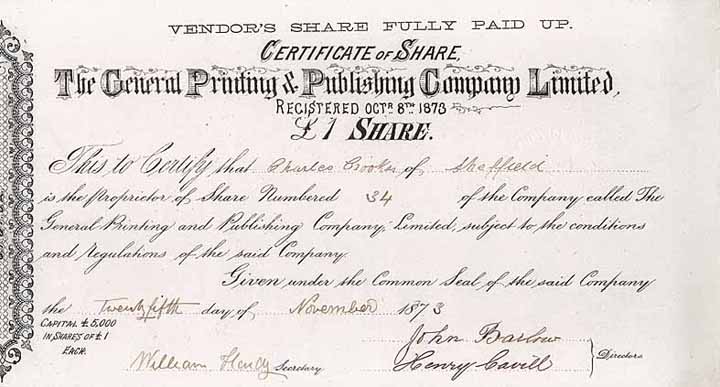 VENDOR'S SHARE FULLY PAID UP.
CERTIFICATE OF SHARE,
The General Printing & Publishing Company Limited,
REGISTERED OCTR. 8TH 1873
£1 SHARE.
This to Certify that Charles Crookes of Sheffield
is the Proprietor of Share Numbered 34 of the Company called The
General Printing and Publishing Company, Limited, subject to the conditions
and regulations of the said Company.
Given under the Common Seal of the said Company
the Twenty fifth day of November 1873
CAPITAL £5,000
IN SHARES OF £1
EACH.
William Hendy Secretary
John Barlow
Henry Cavill
Directors